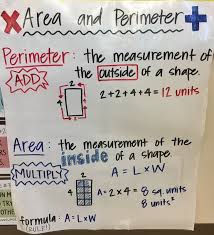 Area and Perimeter
Perimeter: the measurement of
the outside of a shape.
ADD
2
4
4
2
2+2+4+4= 12 units
Area: the measurement of the
inside of a shape.
MULTIPLY
A=LxW
2
4
A=2x4= 8 sq. units
8 units²
formula: A=LxW
(RULE!)